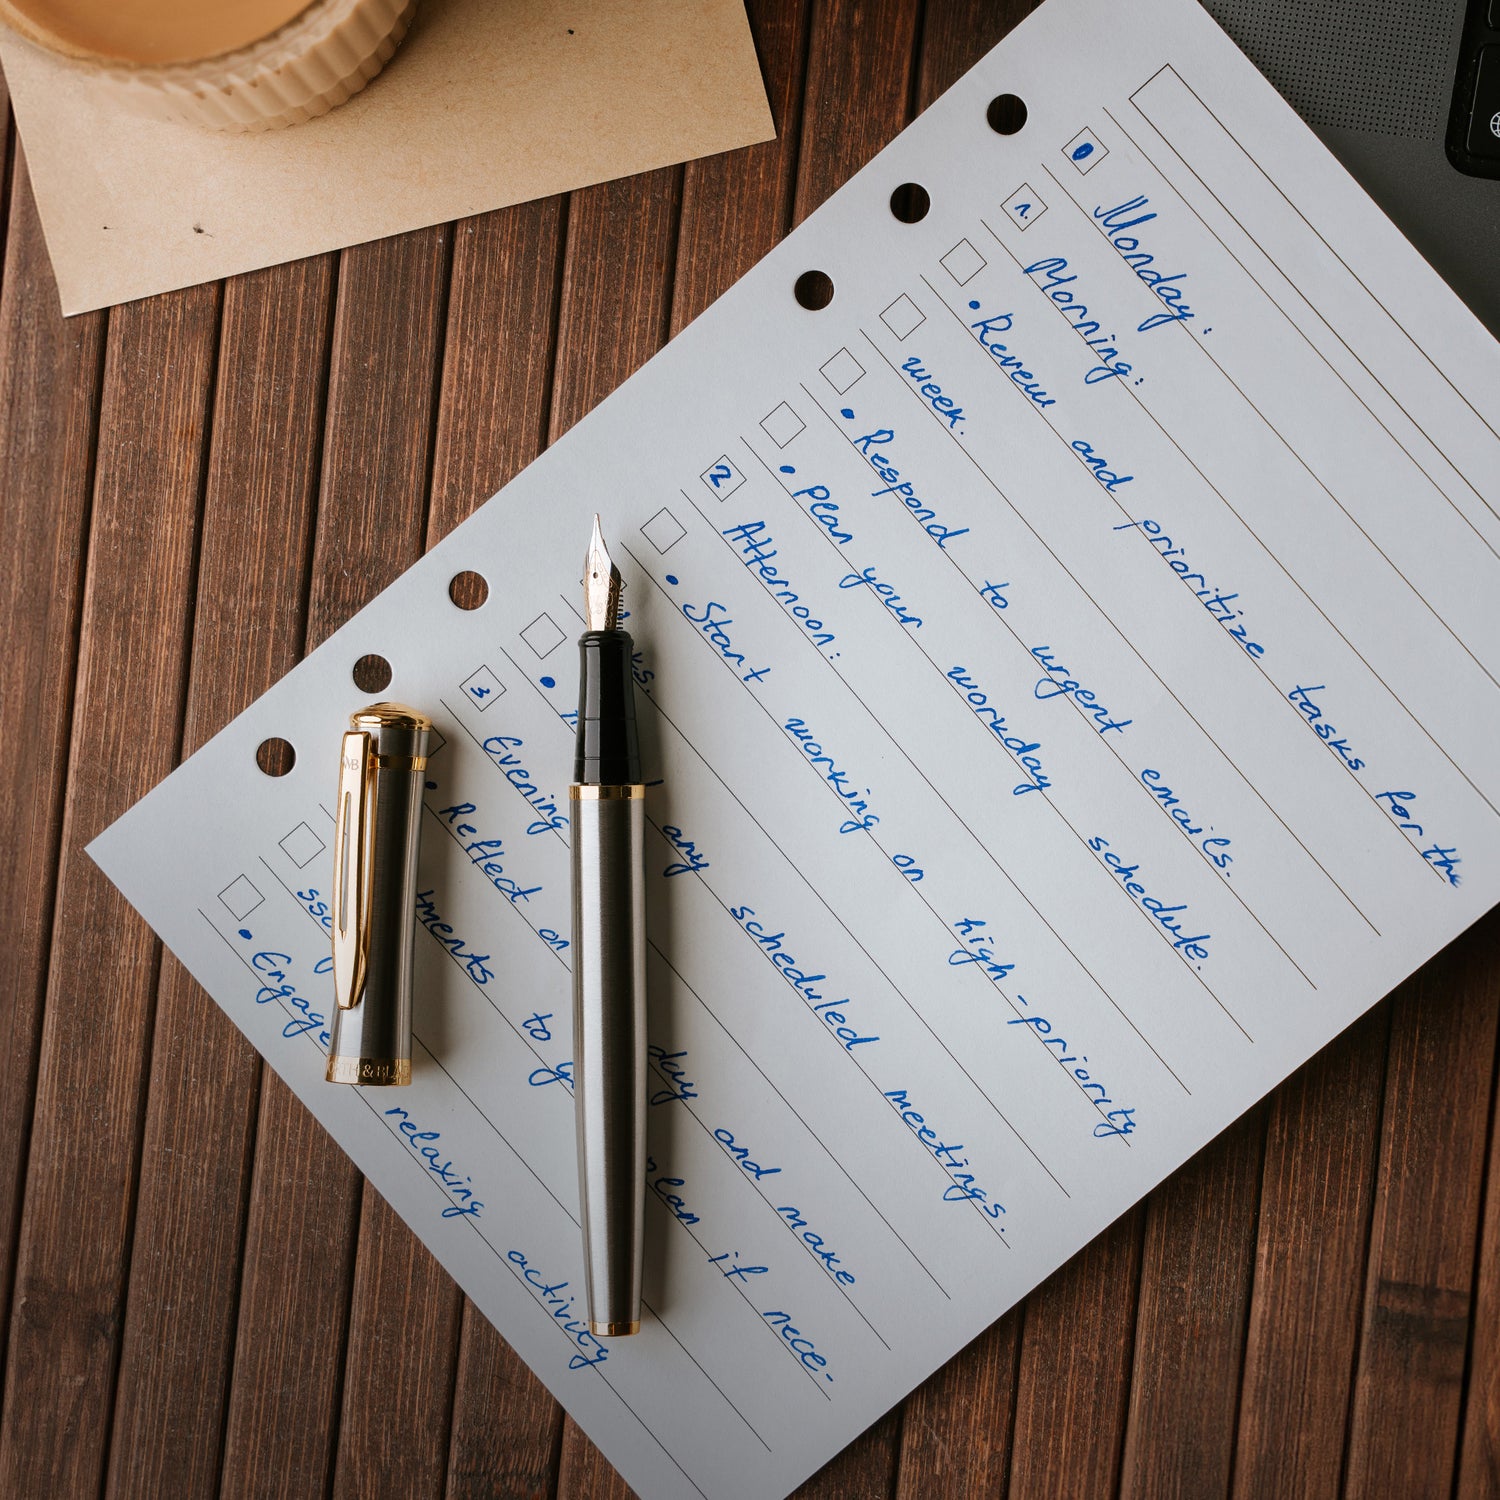 0 Monday:
1. Morning:
• Review and prioritize tasks for the
week.
• Respond to urgent emails.
• plan your workday schedule.
2 Afternoon:
• Start working on high-priority
• any scheduled meetings.
3 Evening
• Reflect on day and make
tments to plan if nece-
• Engage relaxing activity
MB
TH & BLA